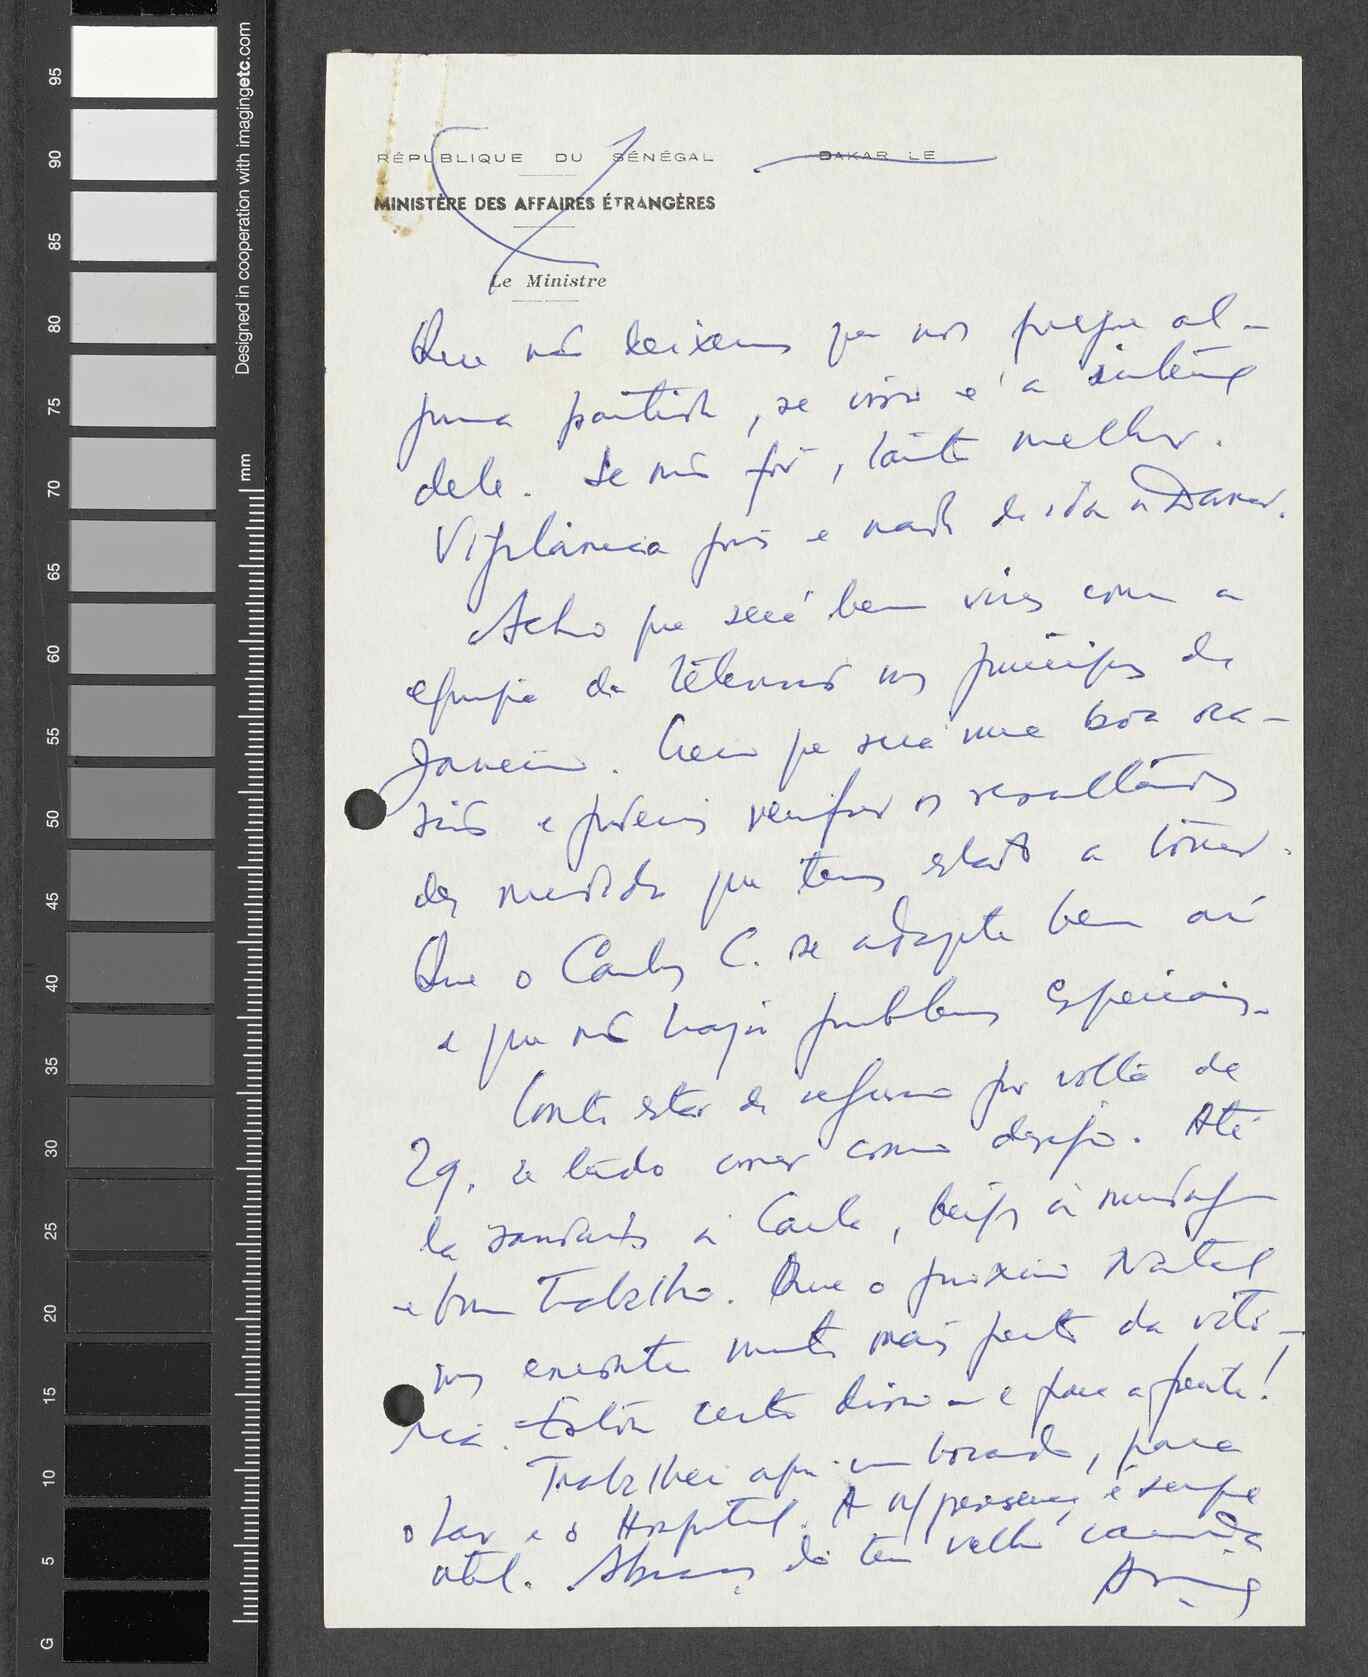 RÉPUBLIQUE DU SÉNÉGAL
DAKAR LE
MINISTÈRE DES AFFAIRES ÉTRANGÈRES
Le Ministre
Que não deixemos que nos pregue al-
guma partida, se isso é a intenção
dele. Se não for, tanto melhor.
Vigilância pois e nada de ida a Dakar.
Acho que será bem vires com a
equipa da no princípio de
Janeiro. Creio que será uma boa oca-
sião e poderás verificar os resultados
das medidas que tens estado a tomar.
Que o Carlos C. se adapte bem aí
e que não haja problemas especiais.
Conto estar de regresso por volta de
29, se tudo correr como desejo. Até
lá saudades à Carla, beijos à
e bom trabalho. Que o próximo Natal
nos encontre muito mais perto da vitó-
ria. Estou certo disso e para a frente!
Trabalhei aqui um bocado, para
o Lar e o Hospital. A n/ presença é sempre
útil. Abraços do teu velho camarada